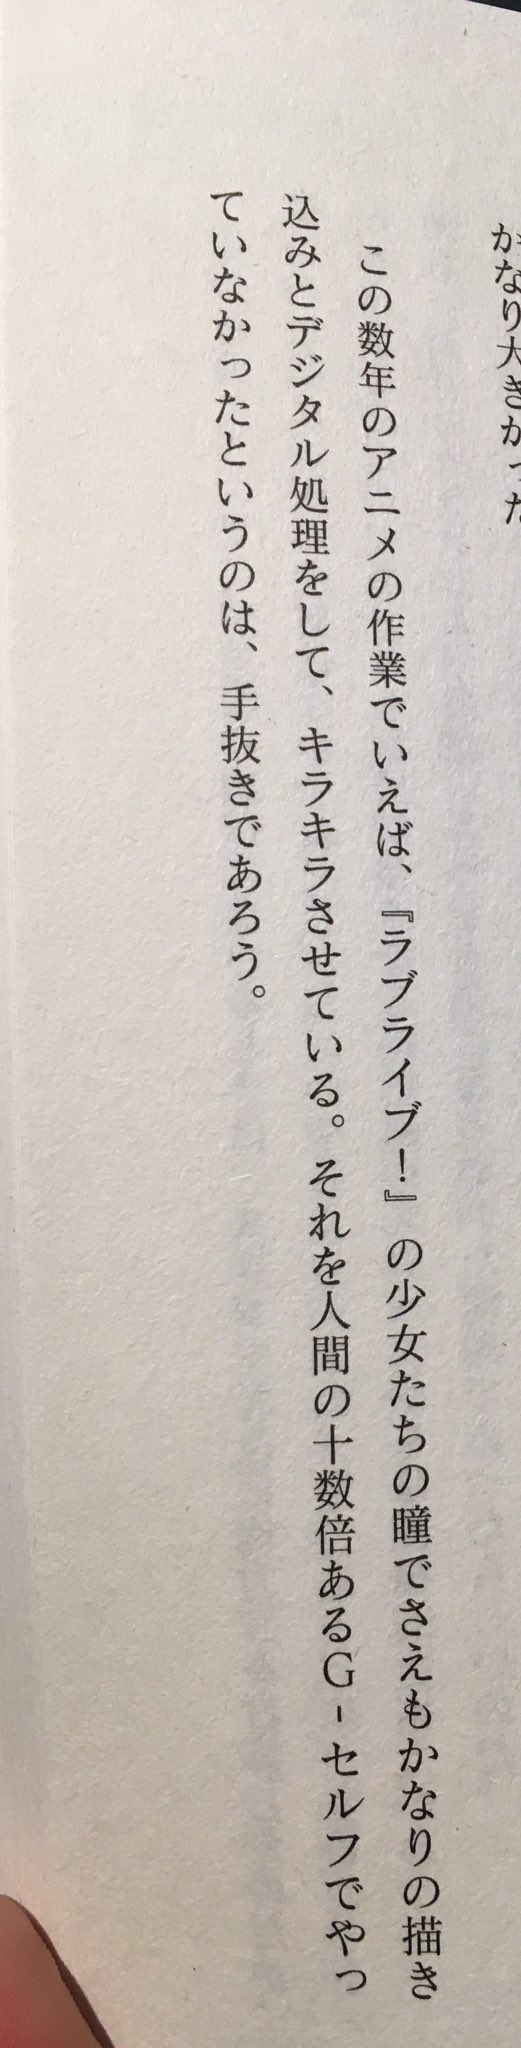 かなり大きかった
この数年のアニメの作業でいえば、『ラブライブ！』の少女たちの瞳でさえもかなりの描き
込みとデジタル処理をして、キラキラさせている。それを人間の十数倍あるG-セルフでやっ
ていなかったというのは、手抜きであろう。